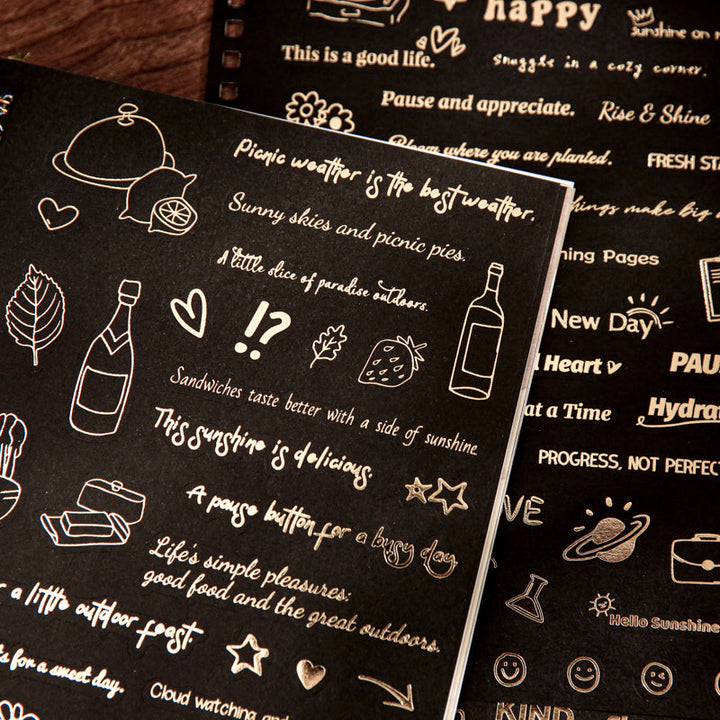 happy
sunshine on
This is a good life.
snuggle in a cozy corner.
Pause and appreciate.
Rise & Shine
Bloom where you are planted.
FRESH
things make big
Pages
New Day
Heart
at a Time
PROGRESS, NOT PERFECT
Hello Sunshine
KIND
Picnic weather is the best weather.
Sunny skies and picnic pies.
A little slice of paradise outdoors.
!?
Sandwiches taste better with a side of sunshine.
This sunshine is delicious.
A pause button for a busy day
Life's simple pleasures:
good food and the great outdoors.
a little outdoor feast.
for a sweet day.
Cloud watching and